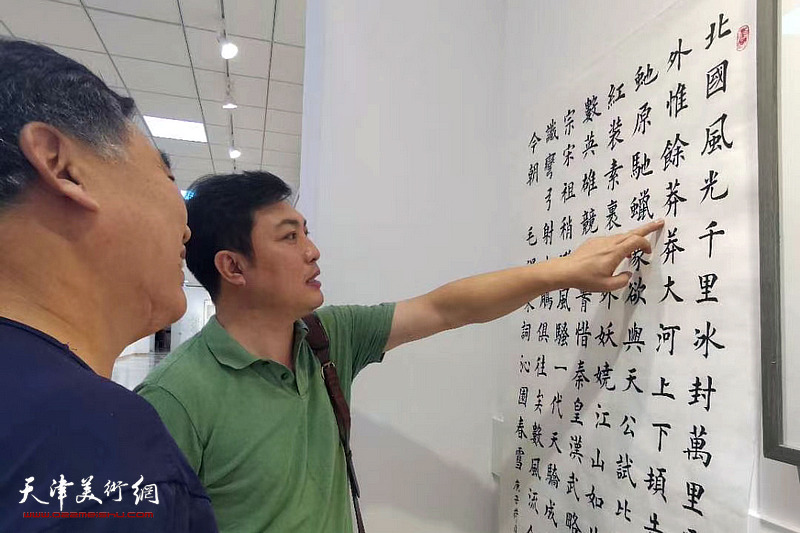 北國風光千里冰封萬里
外惟餘莽莽大河上下頓失
虵原馳蠟象欲與天公試比
紅裝素裹 外妖嬈江山如此
數英雄競 惜秦皇漢武略
宗宋祖稍遜風騷一代天驕成
識彎弓射大鵰俱往矣數風流
今朝 毛澤東詞沁園春雪 庚子
天津美術網